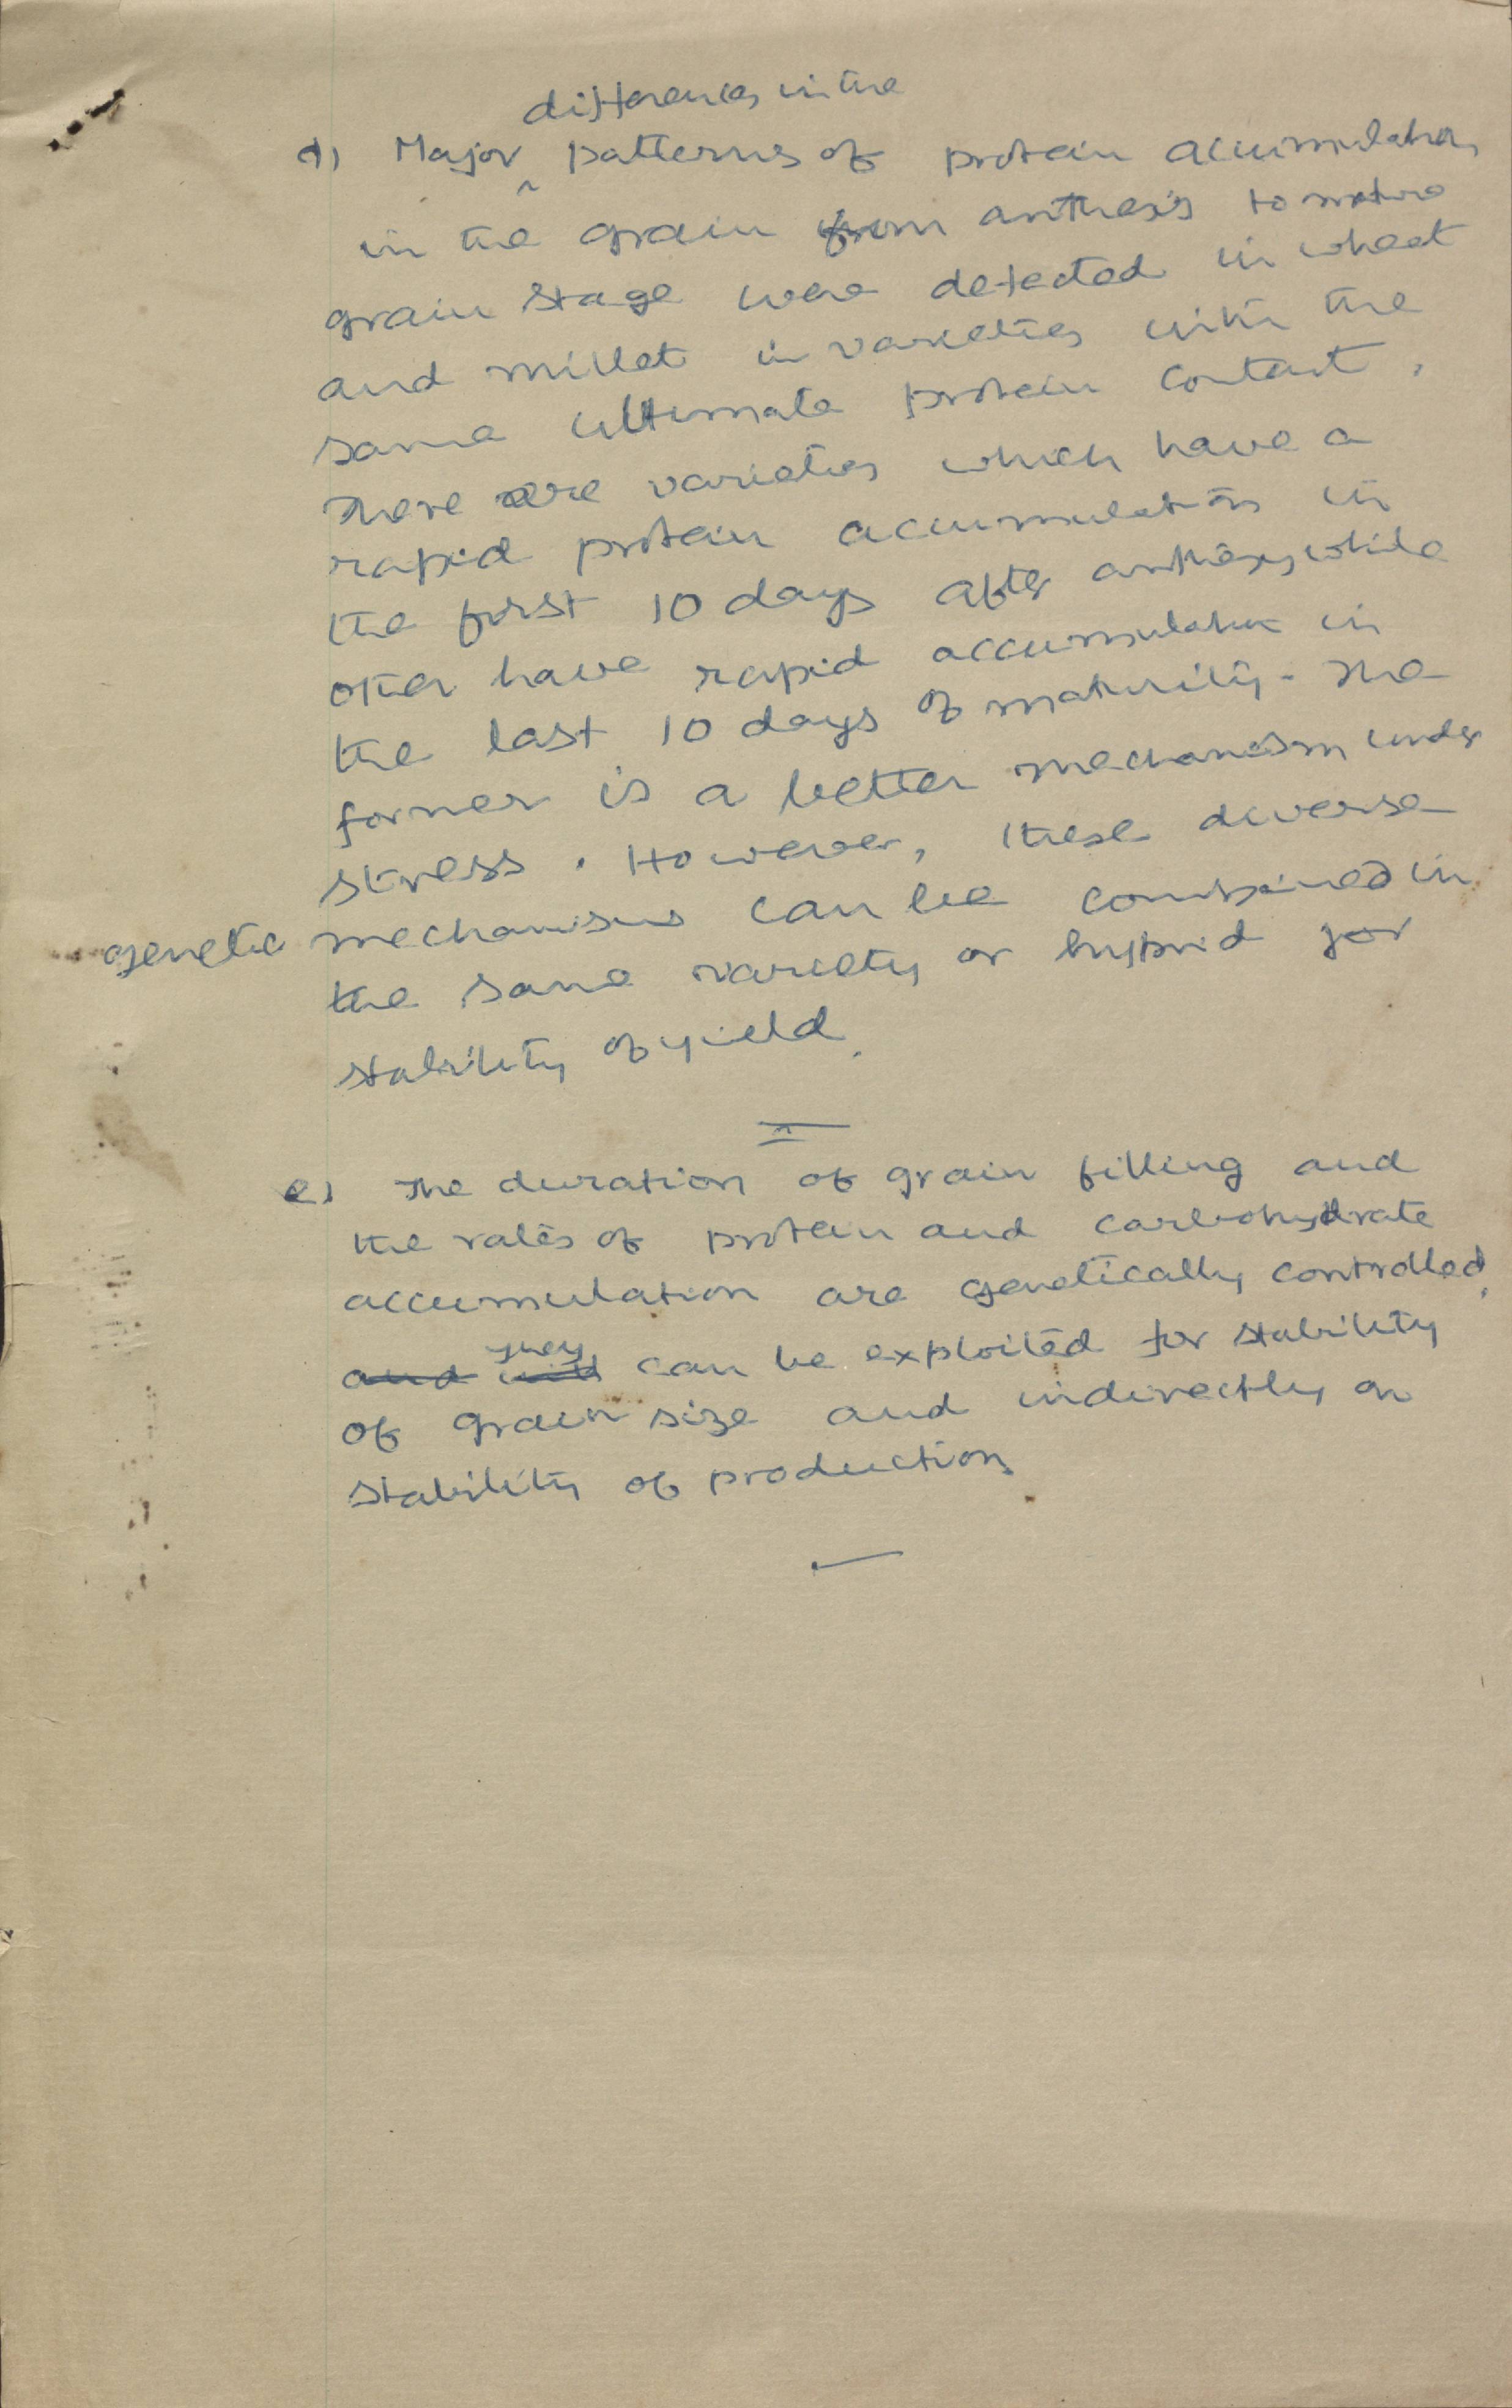 differences in the
d) Major ^ patterns of protein accumulation
in the grain from anthesis to mature
grain stage were detected in wheat
and millet in varieties with the
same ultimate protein content.
There are varieties which have a
rapid protein accumulation in
the first 10 days after anthesis, while
other have rapid accumulation in
the last 10 days of maturity. The
former is a better mechanism under
stress. However, these diverse
genetic mechanisms can be combined in
the same variety or hybrid for
stability of yield.
e) The duration of grain filling and
the rates of protein and carbohydrate
accumulation are genetically controlled.
they
and can be exploited for stability
of grain size and indirectly on
stability of production